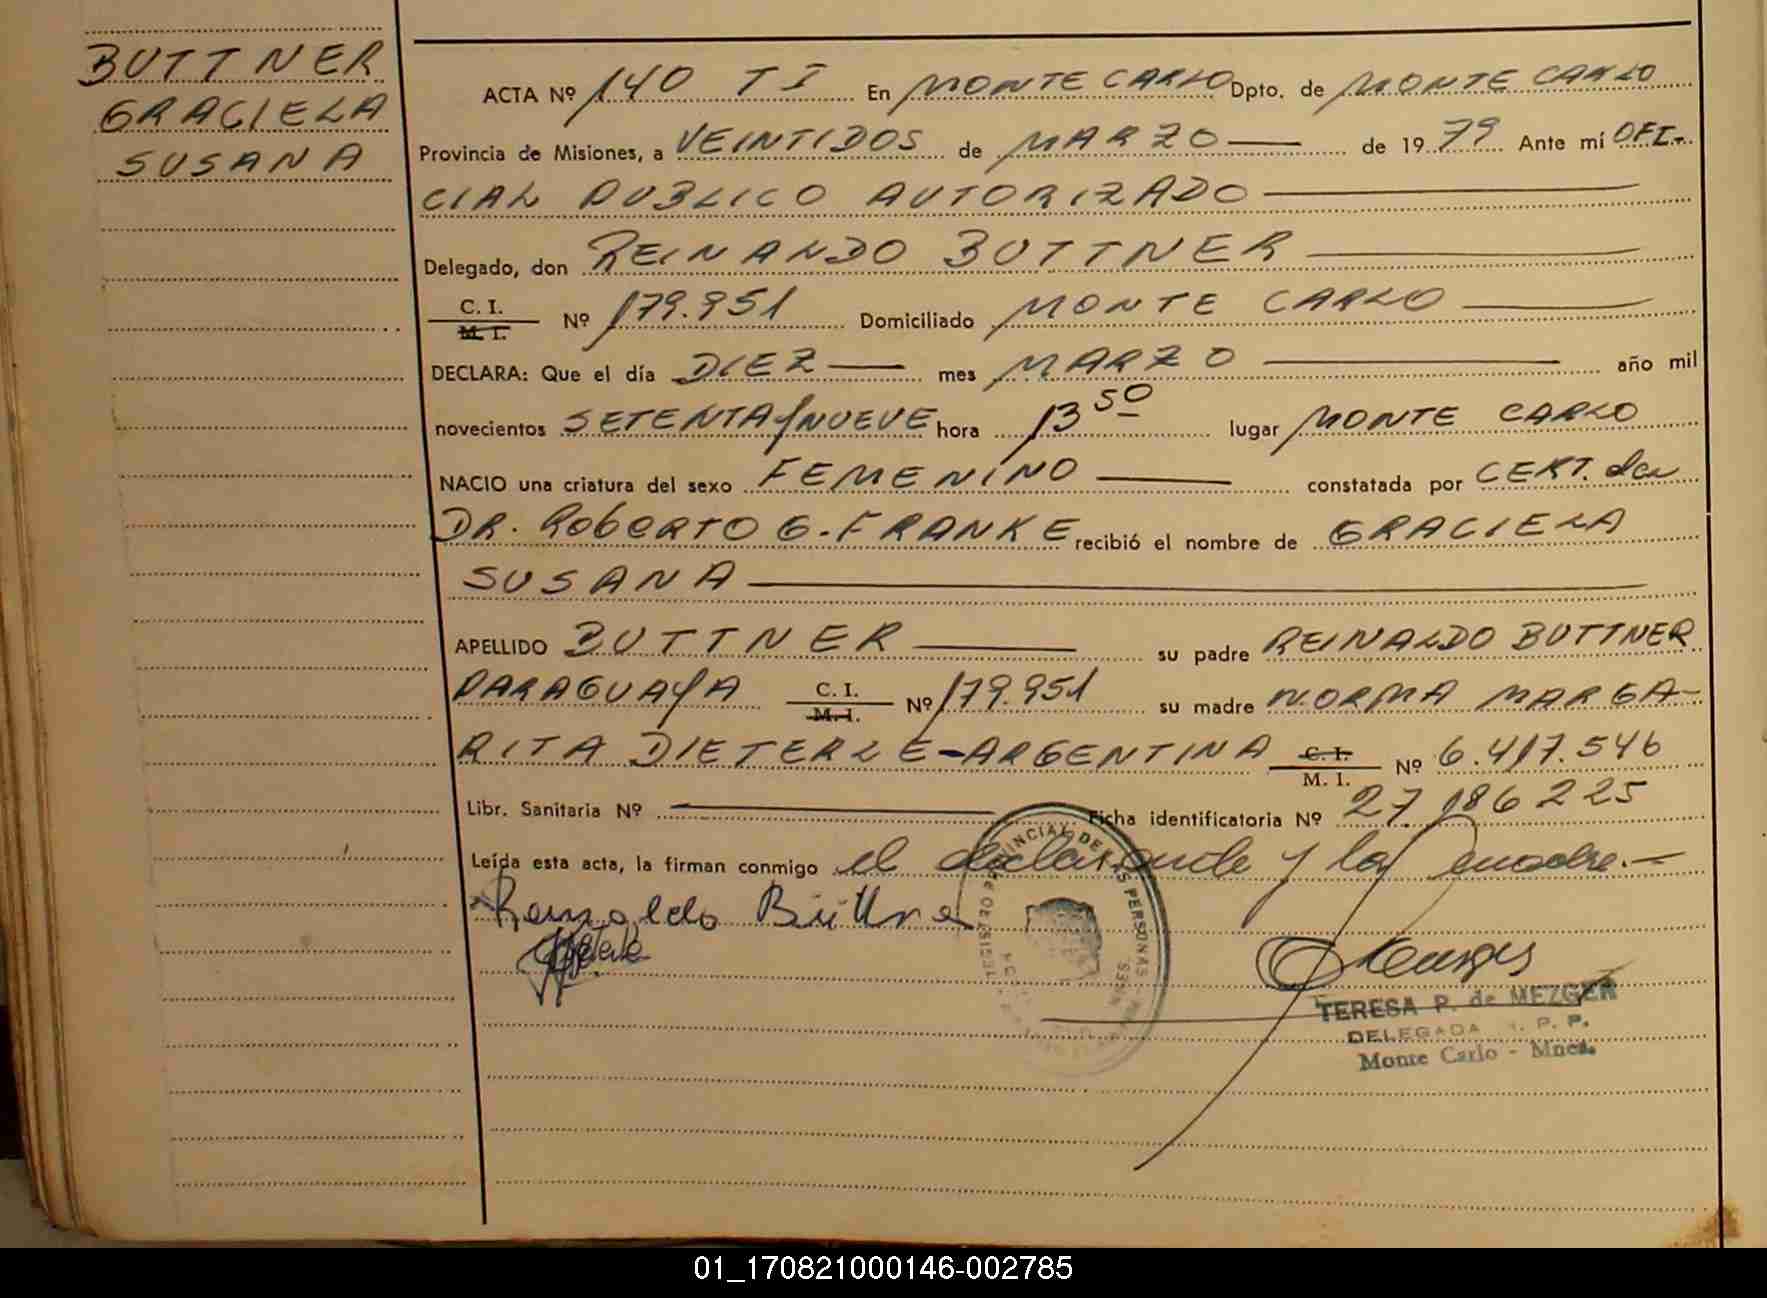 BUTTNER
GRACIELA
SUSANA
ACTA Nº 140 TI En MONTE CARLO Dpto. de MONTE CARLO
Provincia de Misiones, a VEINTIDOS de MARZO de 1979 Ante mí OFI-
CIAL PUBLICO AUTORIZADO
Delegado, don REINALDO BUTTNER
C. I.
M. I. Nº 179.951 Domiciliado MONTE CARLO
DECLARA: Que el día DIEZ mes MARZO año mil
novecientos SETENTA y NUEVE hora 13 50 lugar MONTE CARLO
NACIO una criatura del sexo FEMENINO constatada por CERT. del
DR. ROBERTO G. FRANKE recibió el nombre de GRACIELA
SUSANA
APELLIDO BUTTNER su padre REINALDO BUTTNER
PARAGUAYA C. I.
M. I. Nº 179.951 su madre NORMA MARGA-
RITA DIETERLE-ARGENTINA C. I.
M. I. Nº 6.417.546
Libr. Sanitaria Nº Ficha identificatoria Nº 27.186225
Leída esta acta, la firman conmigo el declarante y la madre.
Reinaldo Büttner
TERESA P. de MEZGER
DELEGADA R. P. P.
Monte Carlo - Mnes.
01_170821000146-002785